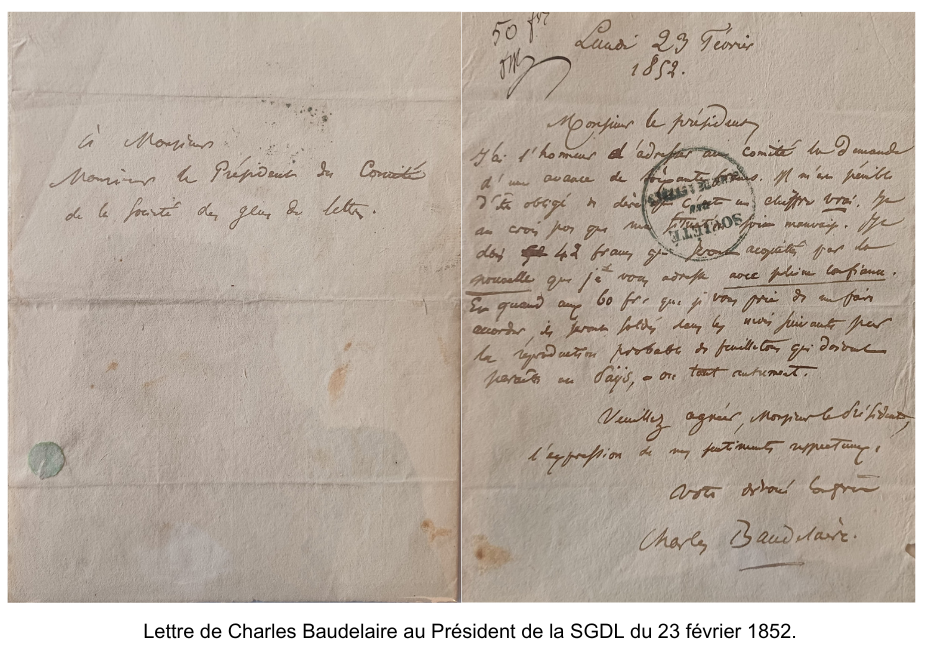 à Monsieur
Monsieur le Président du Comité
de la Société des gens de lettre.
50 frs
Lundi 23 Février
1852.
Monsieur le président
J'ai l'honneur d'adresser au comité la demande
d'une avance de soixante francs. Il m'est pénible
d'être obligé de dire que c'est un chiffre vrai. Je
ne crois pas que ma soit mauvaise. Je
dois 42 francs qui seront acquittés par la
nouvelle que je vous adresse avec pleine confiance.
Et quand aux 60 frs que je vous prie de me faire
accorder ils seront soldés dans les mois suivants par
la réproduction probable de feuilletons qui doivent
paraître au Pays, ou tout autrement.
Veuillez agréer, Monsieur le Président,
l'expression de mes sentiments respectueux.
Votre dévoué confrère
Charles Baudelaire.
SOCIÉTÉ
DES
GENS DE LETTRES
Lettre de Charles Baudelaire au Président de la SGDL du 23 février 1852.